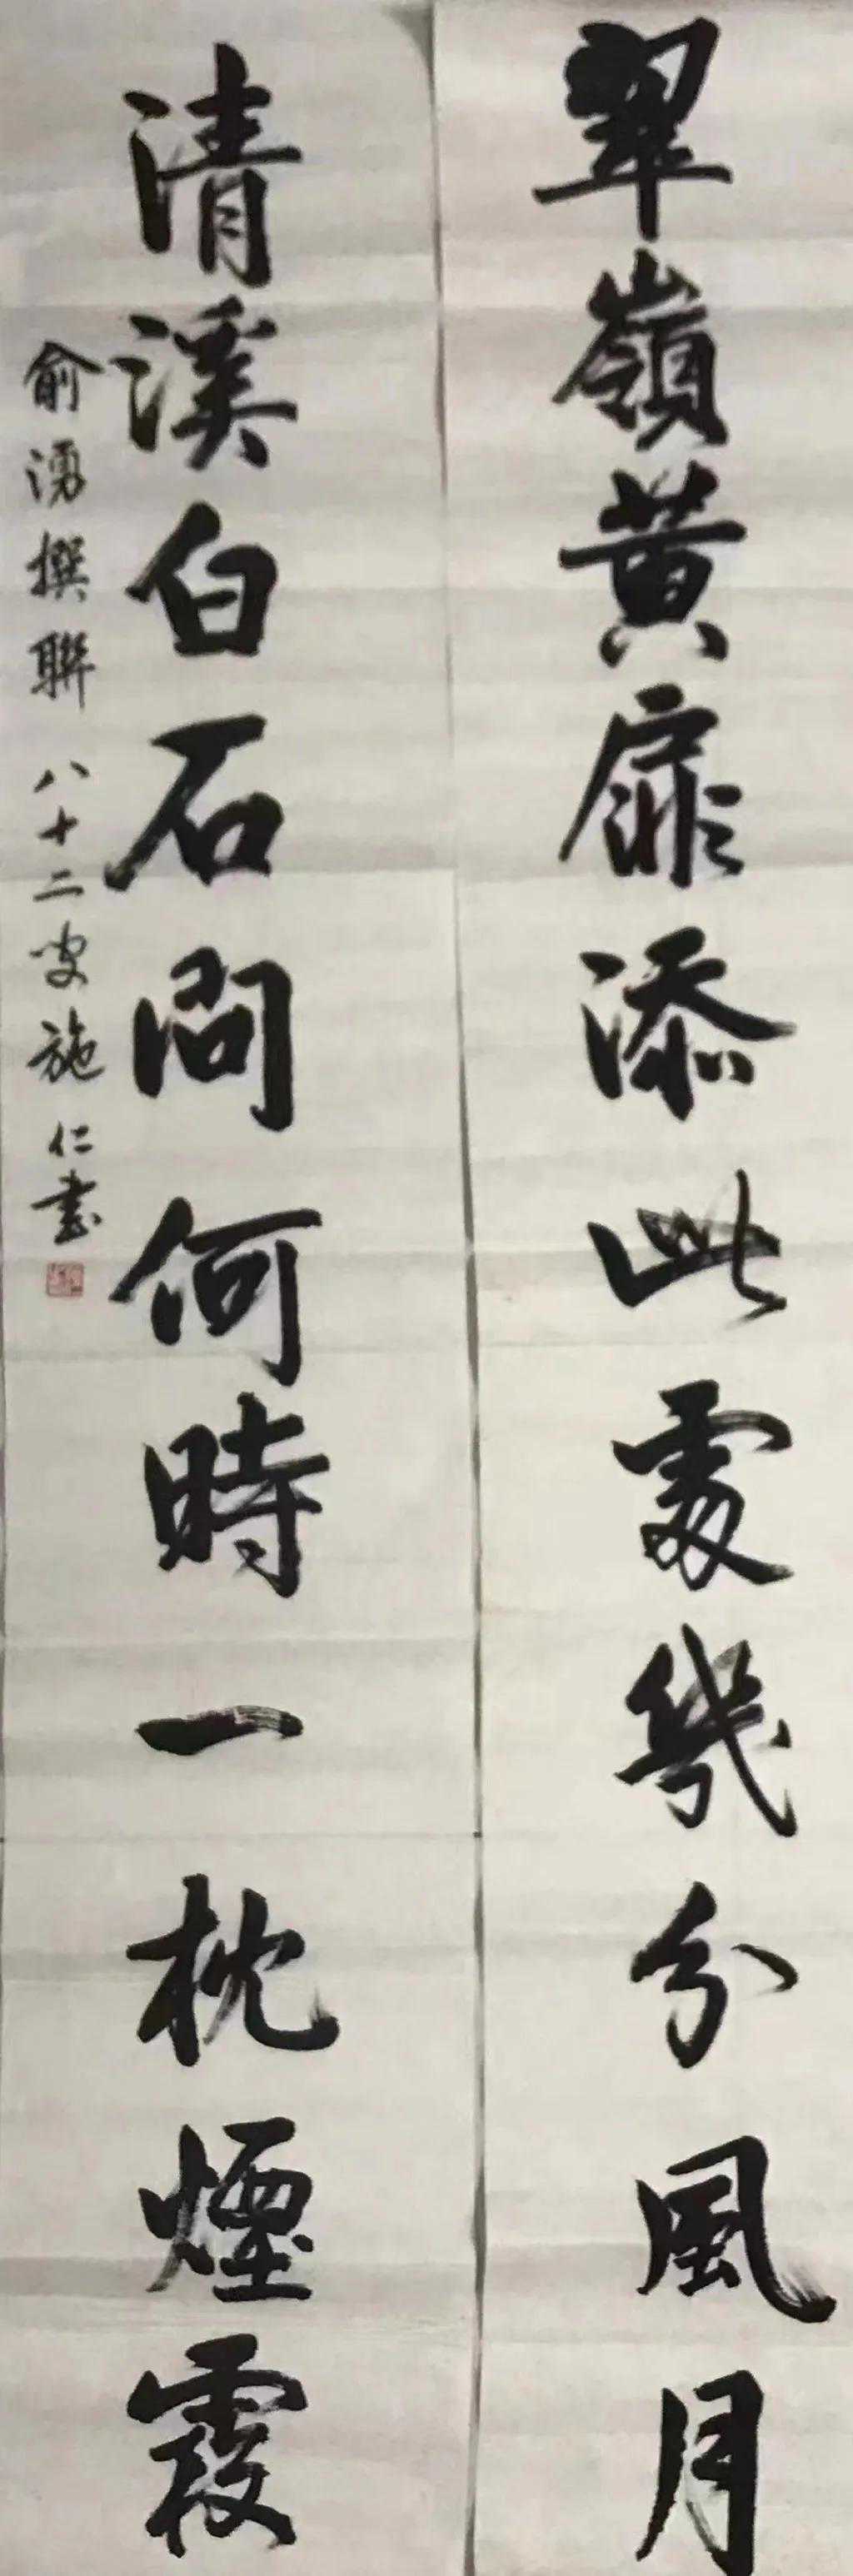 翠嶺黄扉添此處幾分風月
清溪白石問何時一枕煙霞
俞湧撰聯 八十二叟施仁書